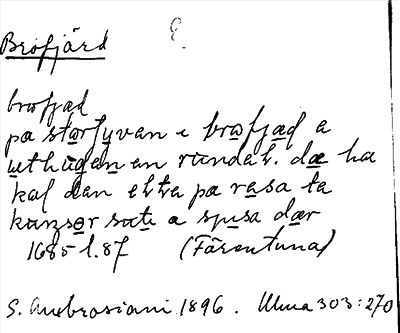 Brofjärd E.
brofjad
pa størfyvan i brofjæd a
uthugen en rundal. dæ ha
kal dan etta pa rasa ta
kunsør satt a spisa dær
1685 l. 87 (Färentuna)
S. Ambrosiani 1896. Ulma 303:270